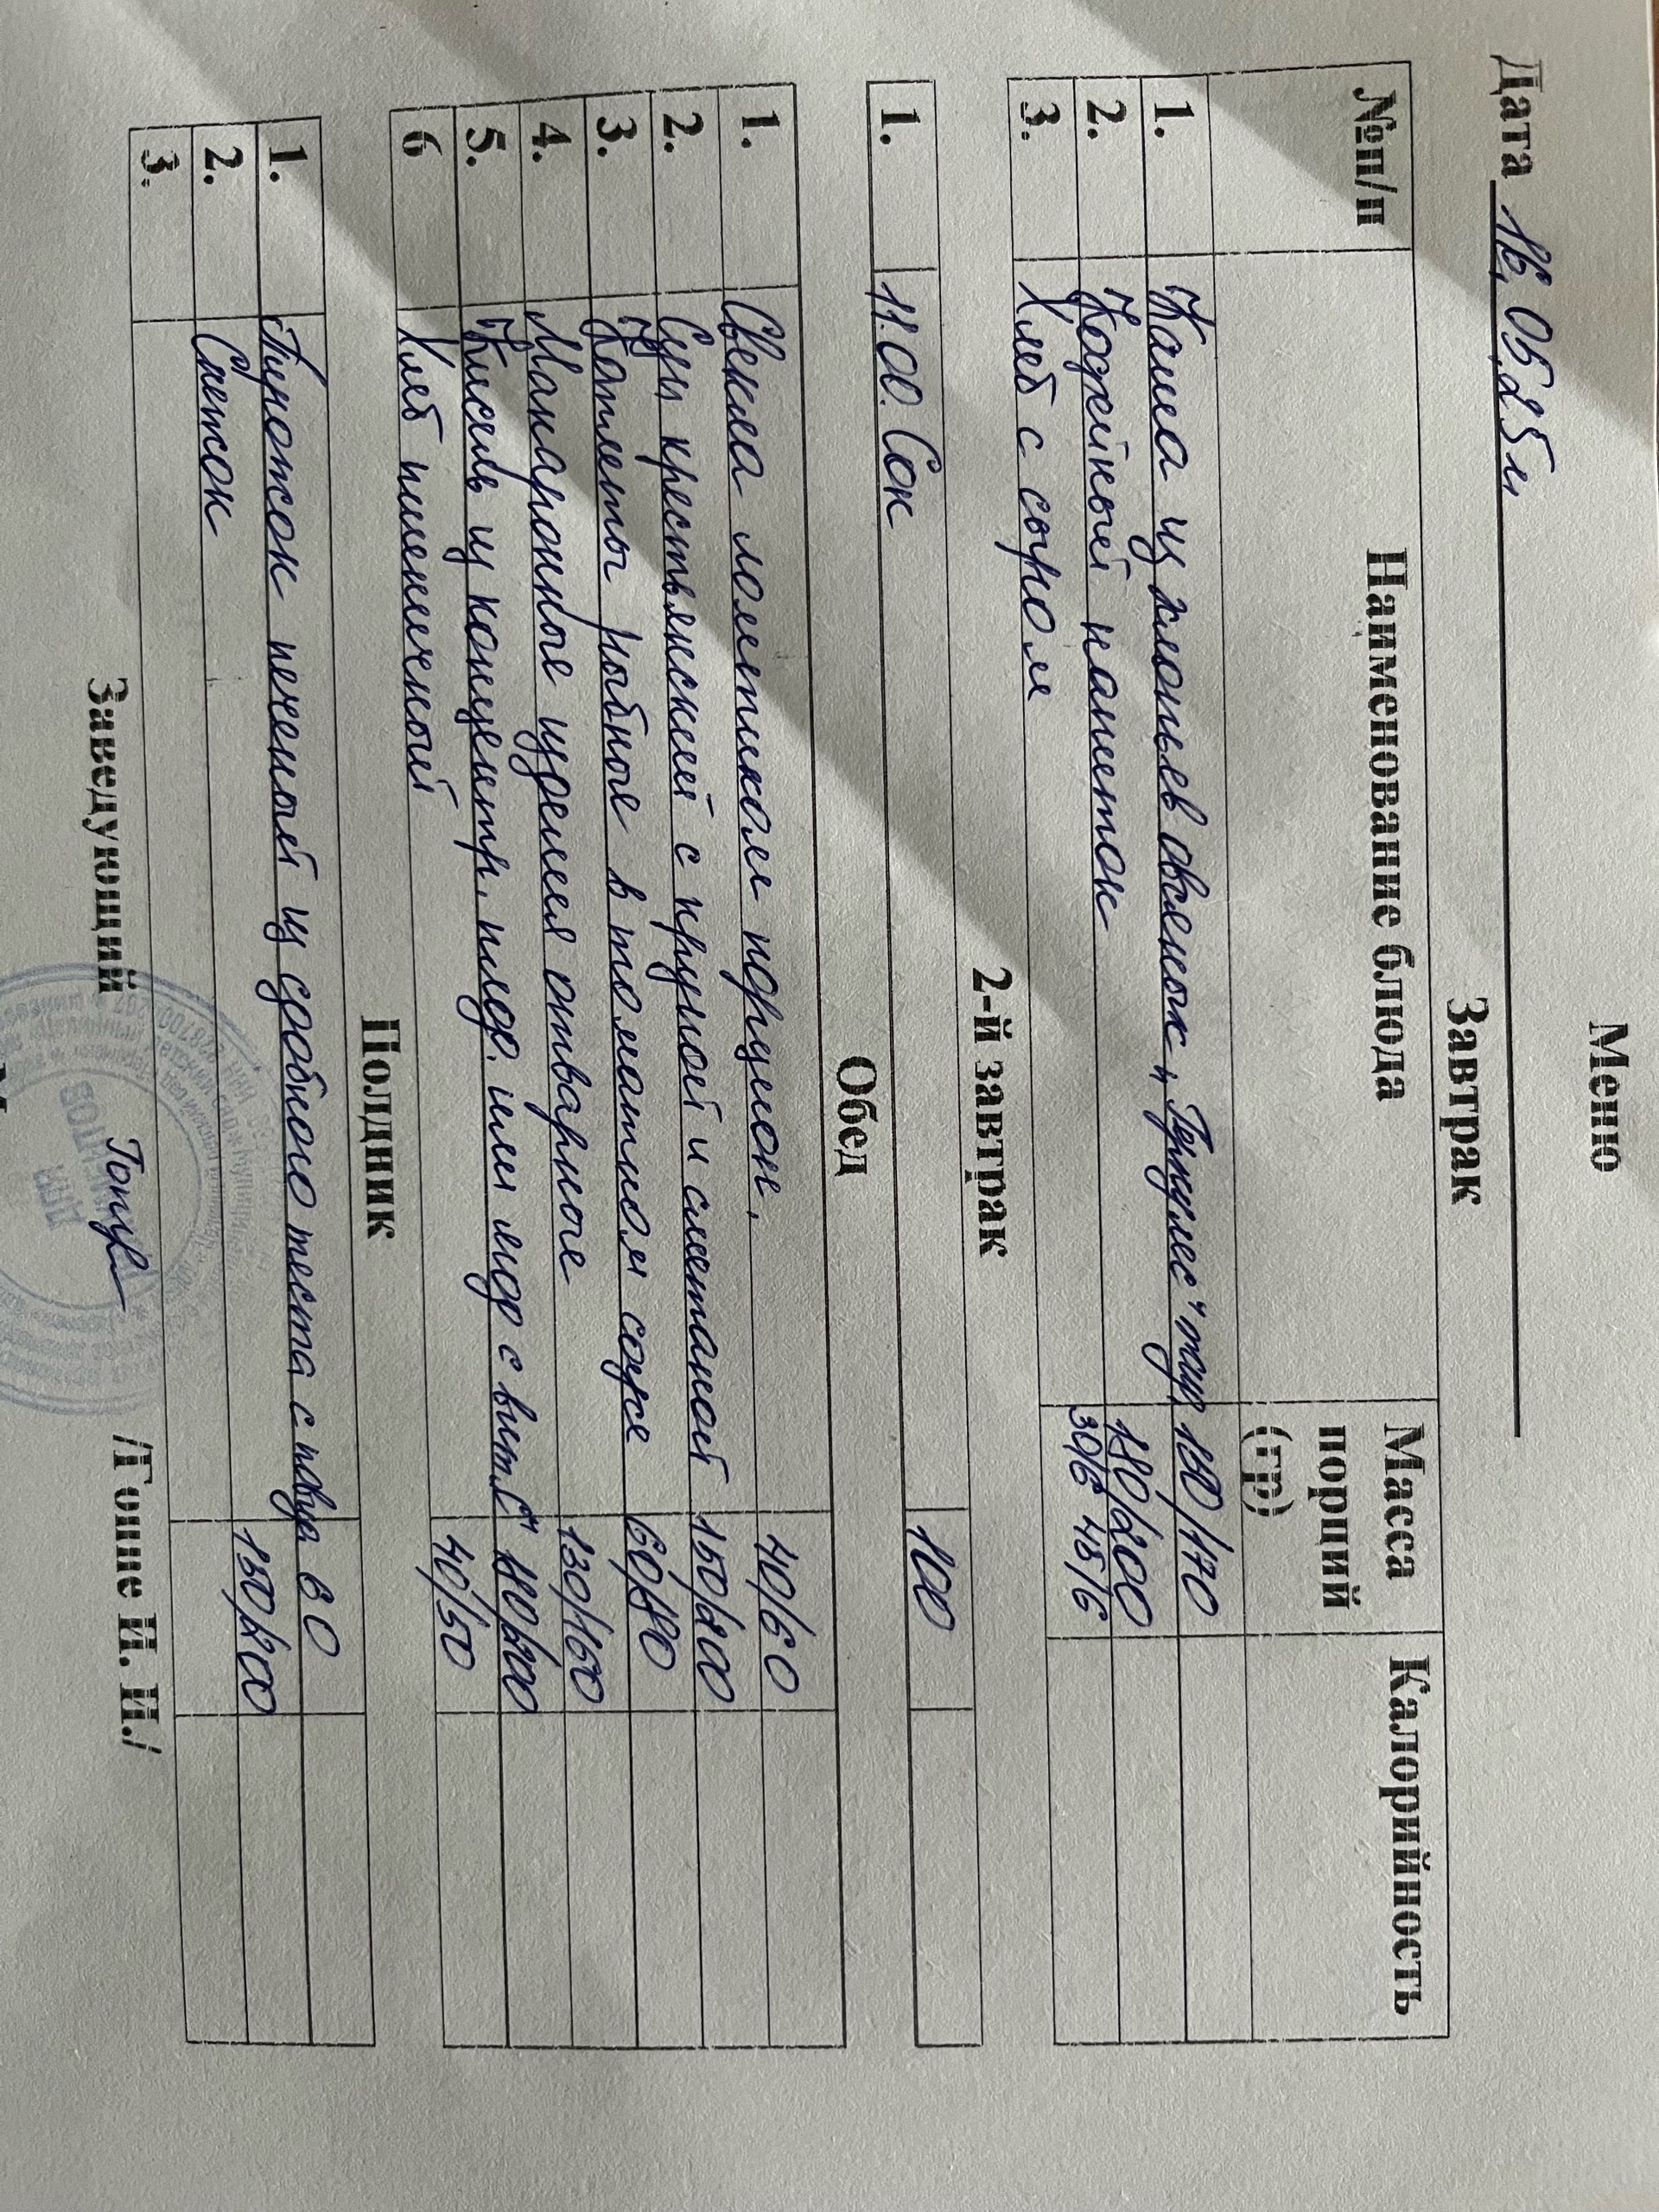 Меню
Дата 16.05.25г
Завтрак
№п/п Наименование блюда Масса порций (гр) Калорийность
1. Каша из хлопьев овсяных „Геркулес" 150/170
2. Кофейный напиток 180/200
3. Хлеб с сыром 30/6 45/6
2-й завтрак
1. 11.00. Сок 100
Обед
1. Свекла ломтиком порцион. 40/60
2. Суп крестьянский с крупой и сметаной 150/200
3. Котлеты рыбные в томатном соусе 60/80
4. Макаронные изделия отварные 130/150
5. Кисель из концентр. плод. или ягод с вит. С" 180/200
6 Хлеб пшеничный 40/50
Полдник
1. Пирожок печеный из сдобного теста с 80
2. Снежок 150/200
3.
Заведующий /Гопце И. И./